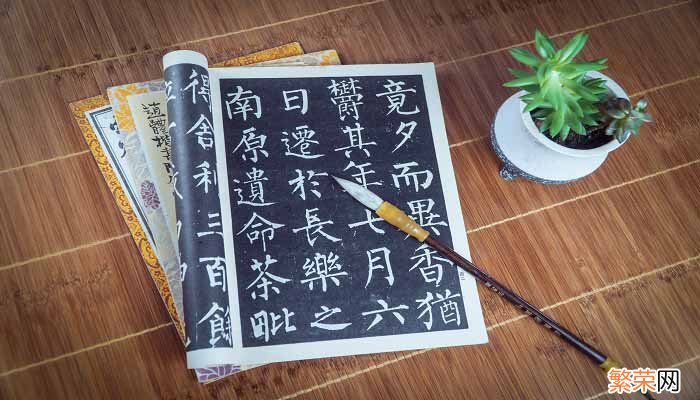 竟夕而異香猶
欝其年七月六
日遷於長樂之
南原遺命茶毗
得舍利三百餘
繁荣网